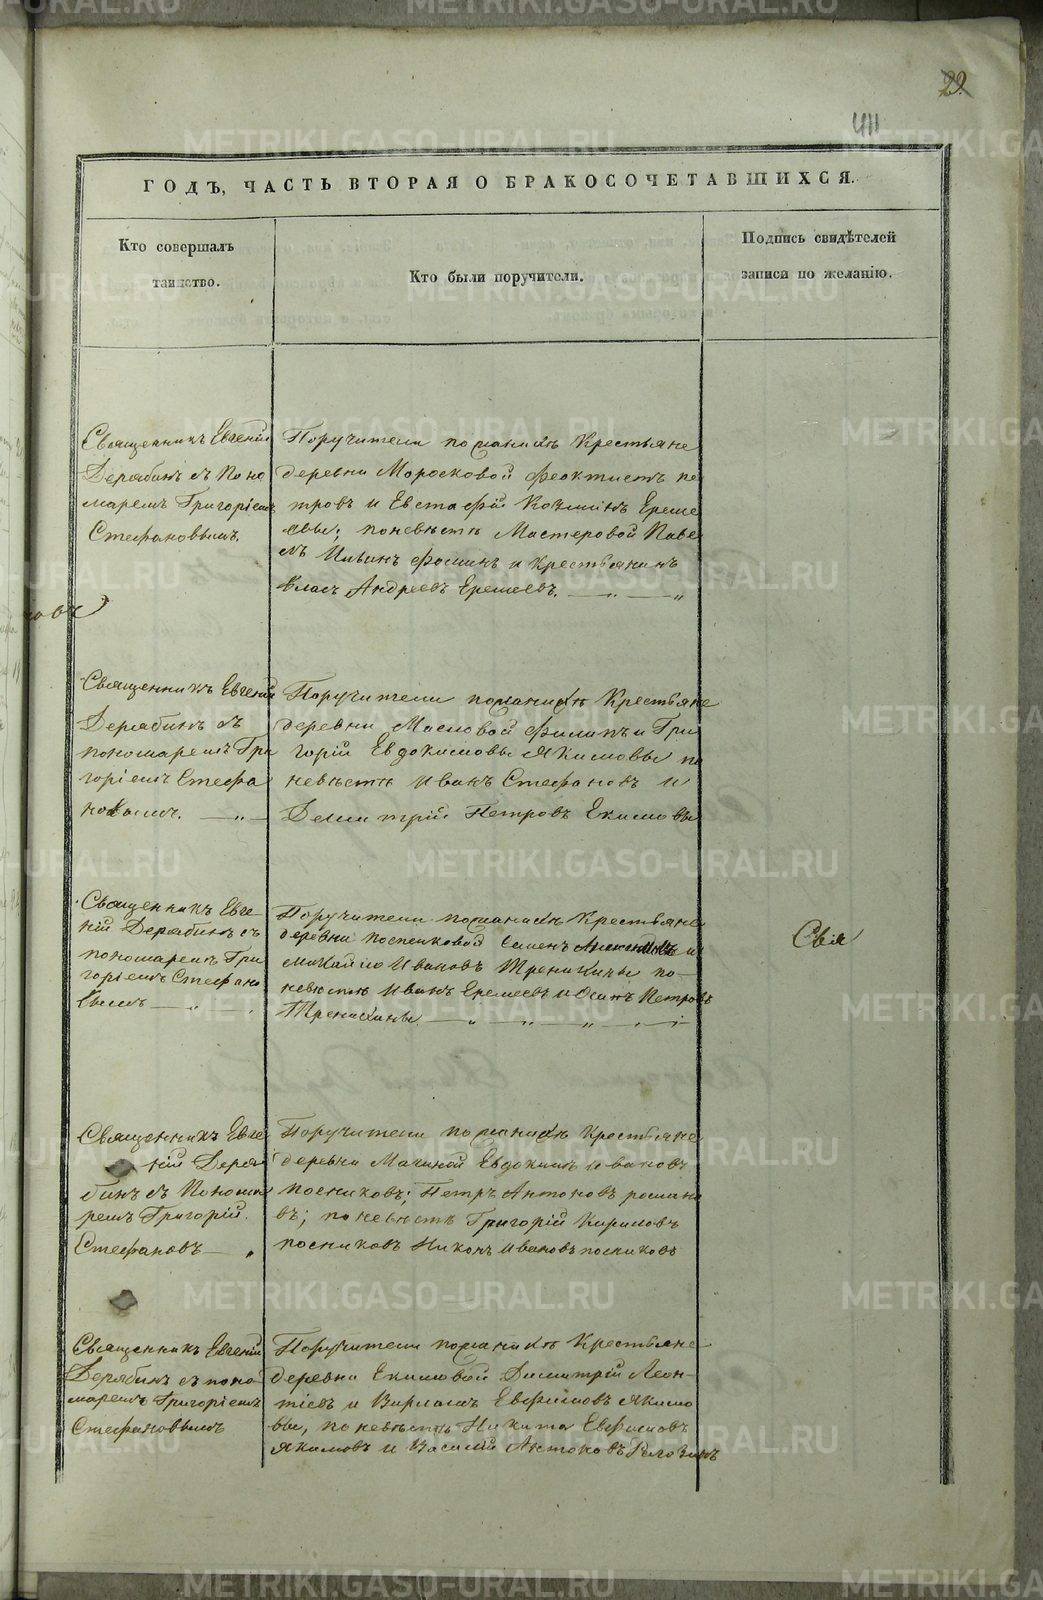 29.
411
ГОДЪ, ЧАСТЬ ВТОРАЯ О БРАКОСОЧЕТАВШИХСЯ.
Кто совершалъ
таинство.
Кто были поручители.
Подпись свидѣтелей
записи по желанію.
Священникъ Евгеній
Дерябинъ съ Поно
маремъ Григоріемъ
Стефановымъ.
Поручители по женихѣ Крестьяне
деревни Моросковой Феоктистъ пе
тровъ и Евстафій Козминъ Ереме
евы; по невѣстѣ Мастеровой Паве
лъ Ильинъ Фоминъ и Крестьянинъ
Власъ Андреевъ Еремеевъ.
Священникъ Евгеній
Дерябинъ съ
пономаремъ Гри
горіемъ Стефа
новымъ.
Поручители по женихѣ Крестьяне
деревни Масловой Филипъ и Гри
горій Евдокимовы Якимовы по
невѣстѣ Иванъ Стефановъ и
Димитрій Петровъ Екимовы
Священникъ Евге-
ній Дерябинъ съ
пономаремъ Гри
горіемъ Стефано
вымъ
Поручители по женихѣ Крестьяне
деревни Семенъ и
Михайло Ивановъ Тренихины по-
невѣстѣ Иванъ Еремеевъ и Осипъ Петровъ
Тренихины
Свія
Священникъ Евге
ній Деря
бинъ съ Понома
ремъ Григорій
Стефановъ
Поручители по женихѣ Крестьяне
деревни Евдокимъ Ивановъ
посниковъ; Петръ Антоновъ романо
въ; по невѣстѣ Григорій Кириловъ
посниковъ Никонъ Ивановъ посниковъ
Священникъ Евгеній
Дерябинъ съ поно
маремъ Григоріемъ
Стефановымъ
Поручители по женихѣ Крестьяне
деревни Екимовой Димитрій Леон-
тіевъ и Варламъ Евфимовъ Якимо
вы, по невѣстѣ Никита Евфимовъ
Якимовъ и Василій Антоновъ
METRIKI.GASO-URAL.RU